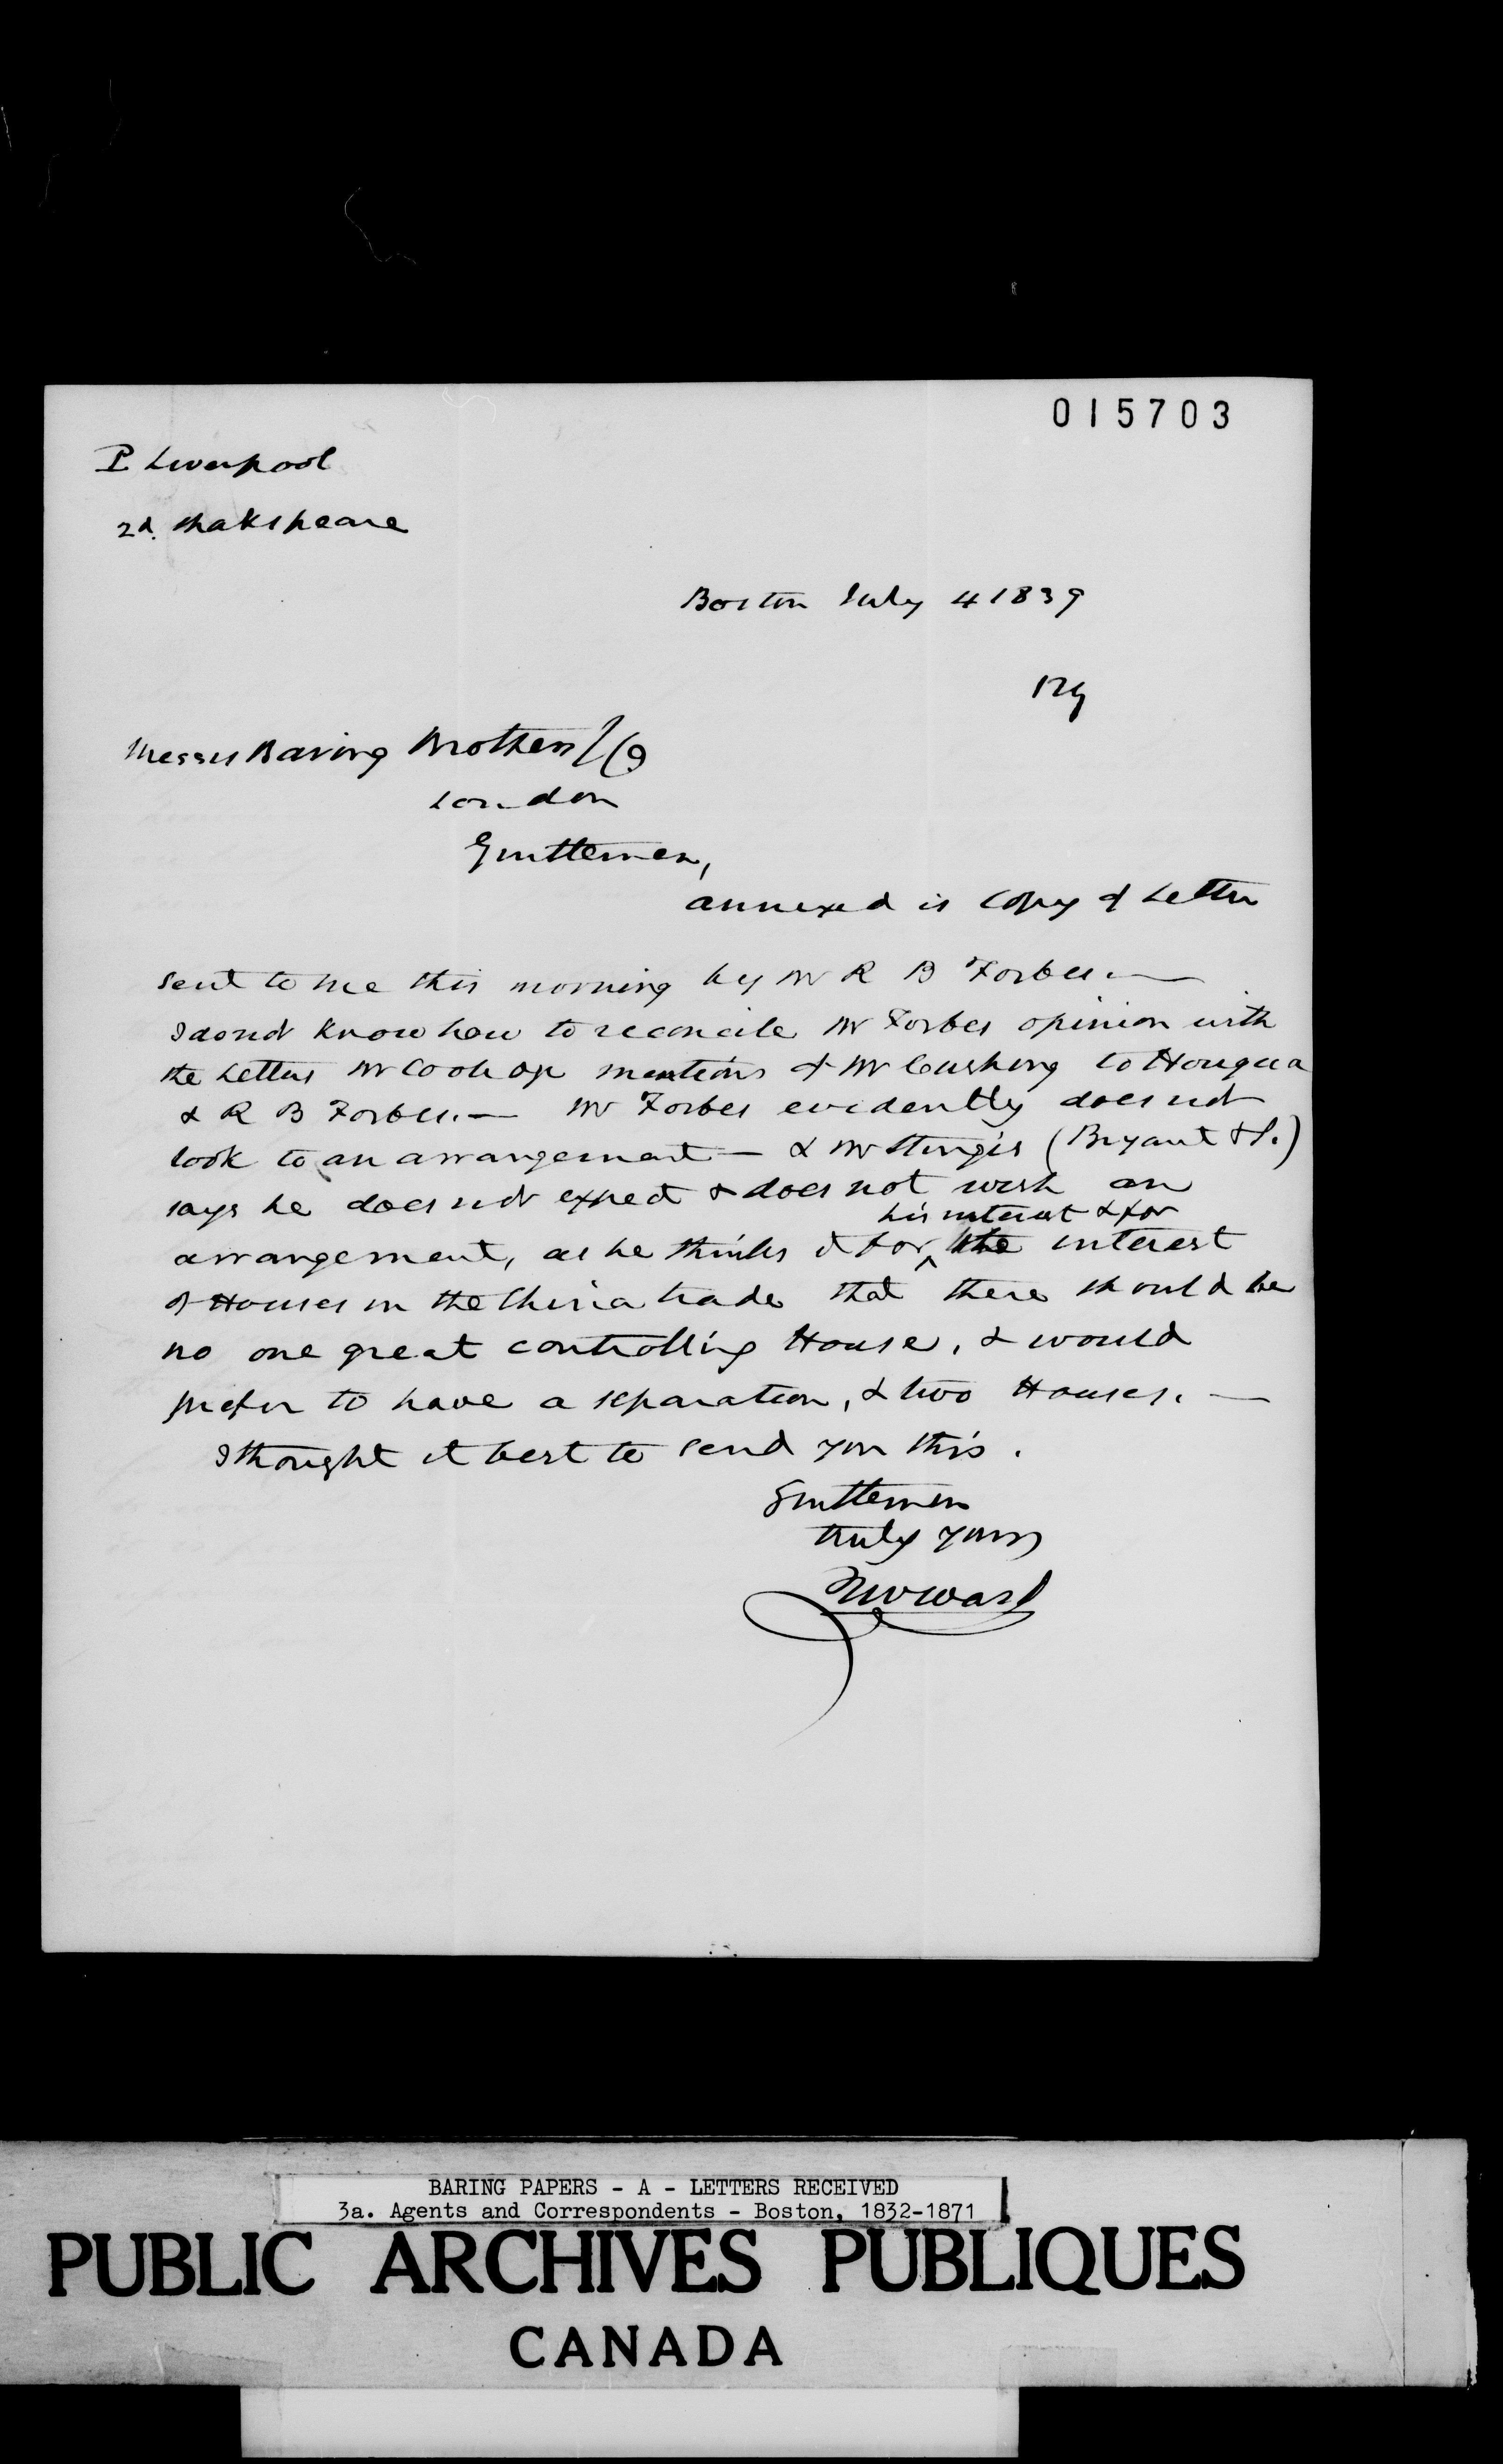 015703
P Liverpool
2d. Shakspeare
Boston July 4 1839
Messrs Baring Brothers & Co
London
Gentlemen,
annexed is copy of Letter
sent to me this morning by Mr R B Forbes. —
I do not know how to reconcile Mr Forbes opinion with
the Letters Mr Coolidge mentions of Mr Cushing to Houqua
& R B Forbes. — Mr Forbes evidently does not
look to an arrangement — & Mr Sturgis (Bryant & S.)
says he does not expect & does not wish an
his interest & for
arrangement, as he thinks it for ^ the interest
of Houses in the China trade that there should be
no one great controlling House, & would
prefer to have a separation, & two Houses. —
I thought it best to send you this.
Gentlemen
truly yours
T W Ward
BARING PAPERS - A - LETTERS RECEIVED
3a. Agents and Correspondents - Boston, 1832-1871
PUBLIC ARCHIVES PUBLIQUES
CANADA